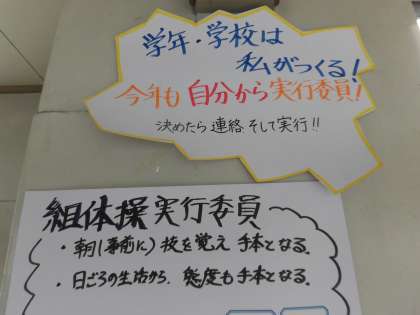 学年・学校は
私がつくる!
今年も 自分から実行委員!
決めたら 連絡 そして実行!!
組体操 実行委員
・朝(事前に)技を覚え 手本となる。
・日ごろの生活から、態度も手本となる。